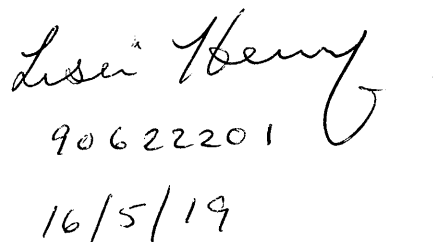 Henry
90622201
16/5/19